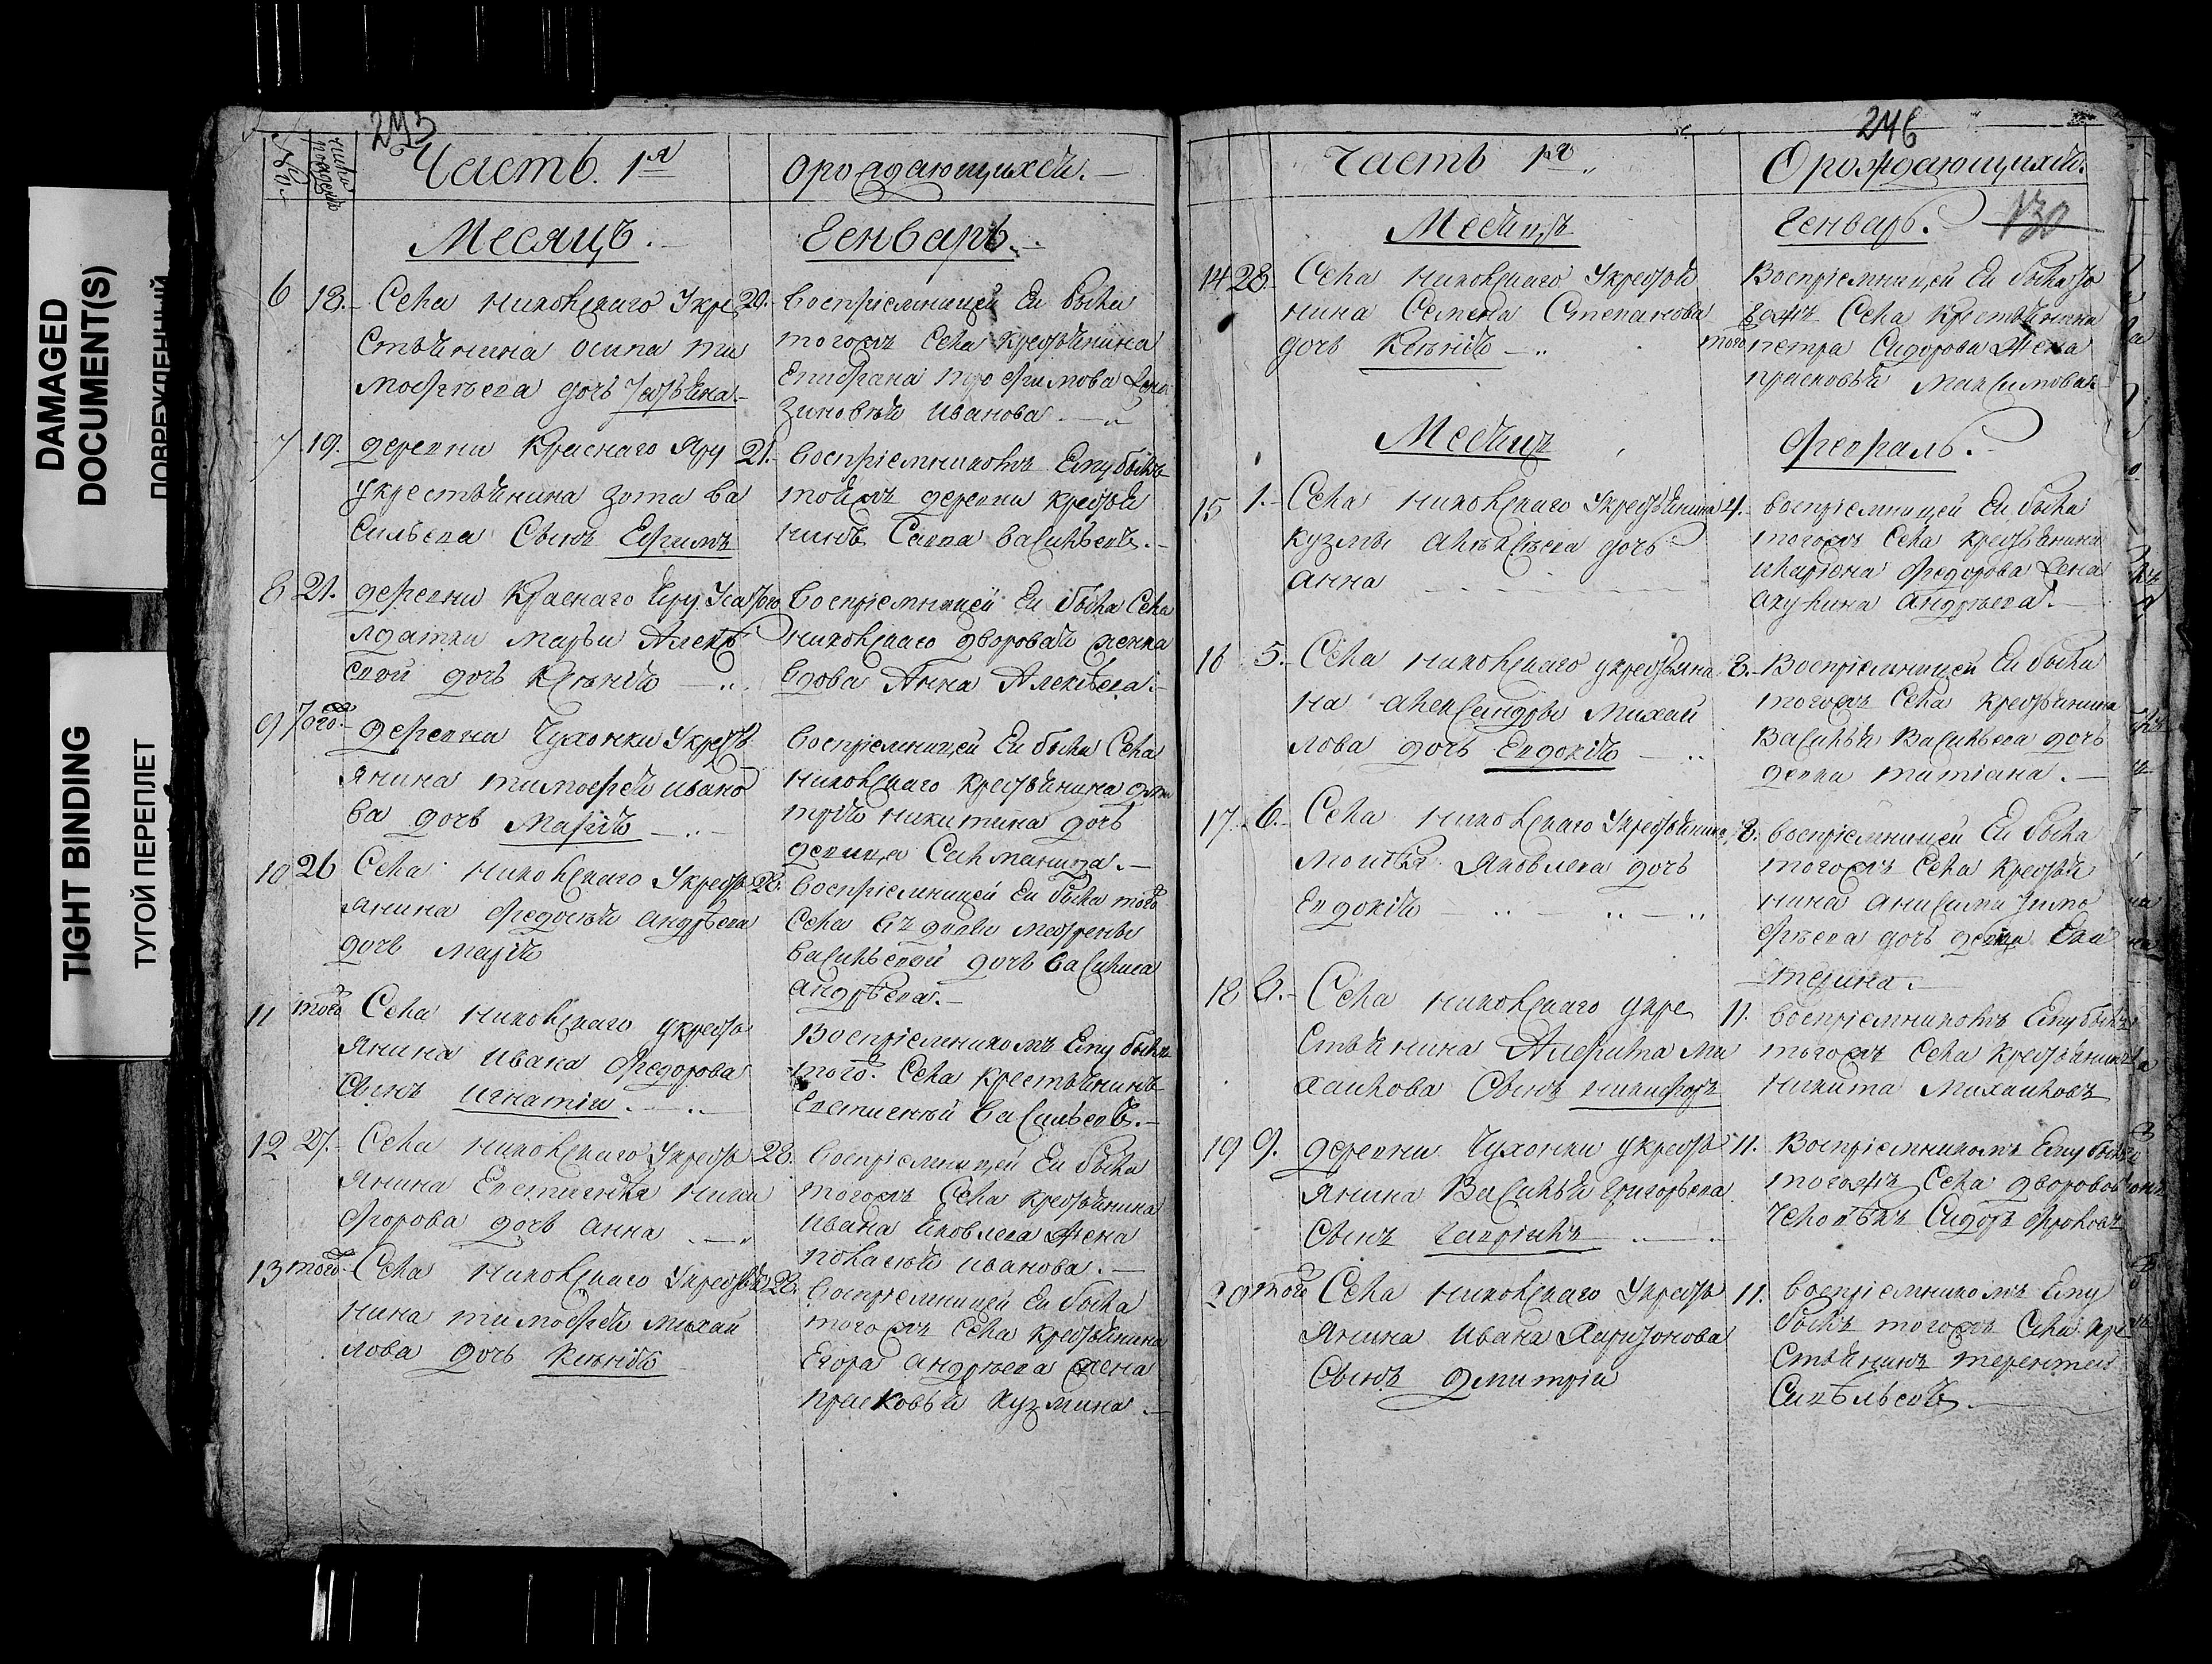 DAMAGED
DOCUMENT(S)
TIGHT BINDING
ТУГОЙ ПЕРЕПЛЕТ
245
Часть. 1я
о рождающихся.
Месяцъ.
Генварь.
6 18. Села Никольскаго У кре
стьянина Осипа Ти
мофѣева дочь Татьяна.
20. Воспріемницей Ей была
тогожъ Села крестьянина
Епифана Трофимова жена
Зиновья Иванова
7 19. деревни Краснаго Яру
у крестьянина Зота Ва
сильева Сынъ Ефимъ
21. Воспріемникомъ Ему былъ
тойжъ деревни крестья
нинъ Савва Васильевъ.
8 21. деревни Краснаго Яру У са
лдатки Марьи Алекс
евой дочь Ксенія
Воспріемницей Ей была Села
Никольскаго дворовая женка
вдова Анна Алексѣева.
9 Того деревни Чухонки У крестъ
янина Тимофея Ивано
ва дочь Марія
Воспріемницей Ей была Села
Никольскаго крестьянина Дми
трія Никитина дочь
девица
10 26 Села Никольскаго У крестъ
янина Федосѣя Андрѣева
дочь Марія
28. Воспріемницей Ей была того
Села вздовы Матрены
Васильевой дочь Василиса
Андрѣева.
11 того Села Никольскаго У крестъ
янина Ивана Федорова
Сынъ Игнатіи.
Воспріемникомъ Ему былъ
того. Села Крестьянинъ
Евстигней Васильевъ.
12 27. Села Никольскаго У крестъ
янина Евстигнѣя Ники
форова дочь Анна
28. Воспріемницей Ей была
тогожъ Села крестьянина
Ивана Яковлева жена
Иванова.
13 того Села Никольскаго У крестья
нина Тимофея Михай
лова дочь Ксенія
28. Воспріемницей Ей была
тогожъ Села крестьянина
Егора Андрѣева жена
Прасковья Кузмина.
246
Часть 1я
О рождающихся.
130
Месяцъ
Генварь.
14 28. Села Никольскаго У крестья
нина Семена Степанова
дочь Ксенія
того
Воспріемницей Ей была то
гожъ Села Крестьянина
Петра Сидорова жена
Прасковья Максимова
Месяцъ
Февраль.
15 1. Села Никольскаго У крестьянина
Кузмы Алексѣева дочь
Анна
4. Воспріемницей Ей была
тогожъ Села крестьянина
Илариона Федорова жена
Акулина Андрѣева.
16 5. Села Никольскаго у крестьяни
на Александры Михай
лова дочь Евдокія
8. Воспріемницей Ей была
тогожъ Села крестьянина
Василья Васильева дочь
девка Татіана.
17. 6. Села Никольскаго У крестьянина
Яковлева дочь
Евдокія
8. Воспріемницей Ей была
тогожъ Села крестья
нина Анисима Тимо
фѣева дочь девица Ека
терина.
18 6. Села Никольскаго у кре
стьянина Михаилова Сынъ Никифоръ
11. Воспріемникомъ Ему былъ
тогожъ Села Крестьянинъ
Никита Михаиловъ
19 9. деревни Чухонки у крестъ
янина Василья Григорьева
Сынъ Гаврилъ
11. Воспріемникомъ Ему былъ
тогожъ Села дворовой
человѣкъ Сидоръ Фроловъ
20 того Села Никольскаго У крестъ
янина Ивана Харитонова
Сынъ Дмитріи
11. Воспріемникомъ Ему
былъ тогожъ Села Кре
стьянинъ Терентеи